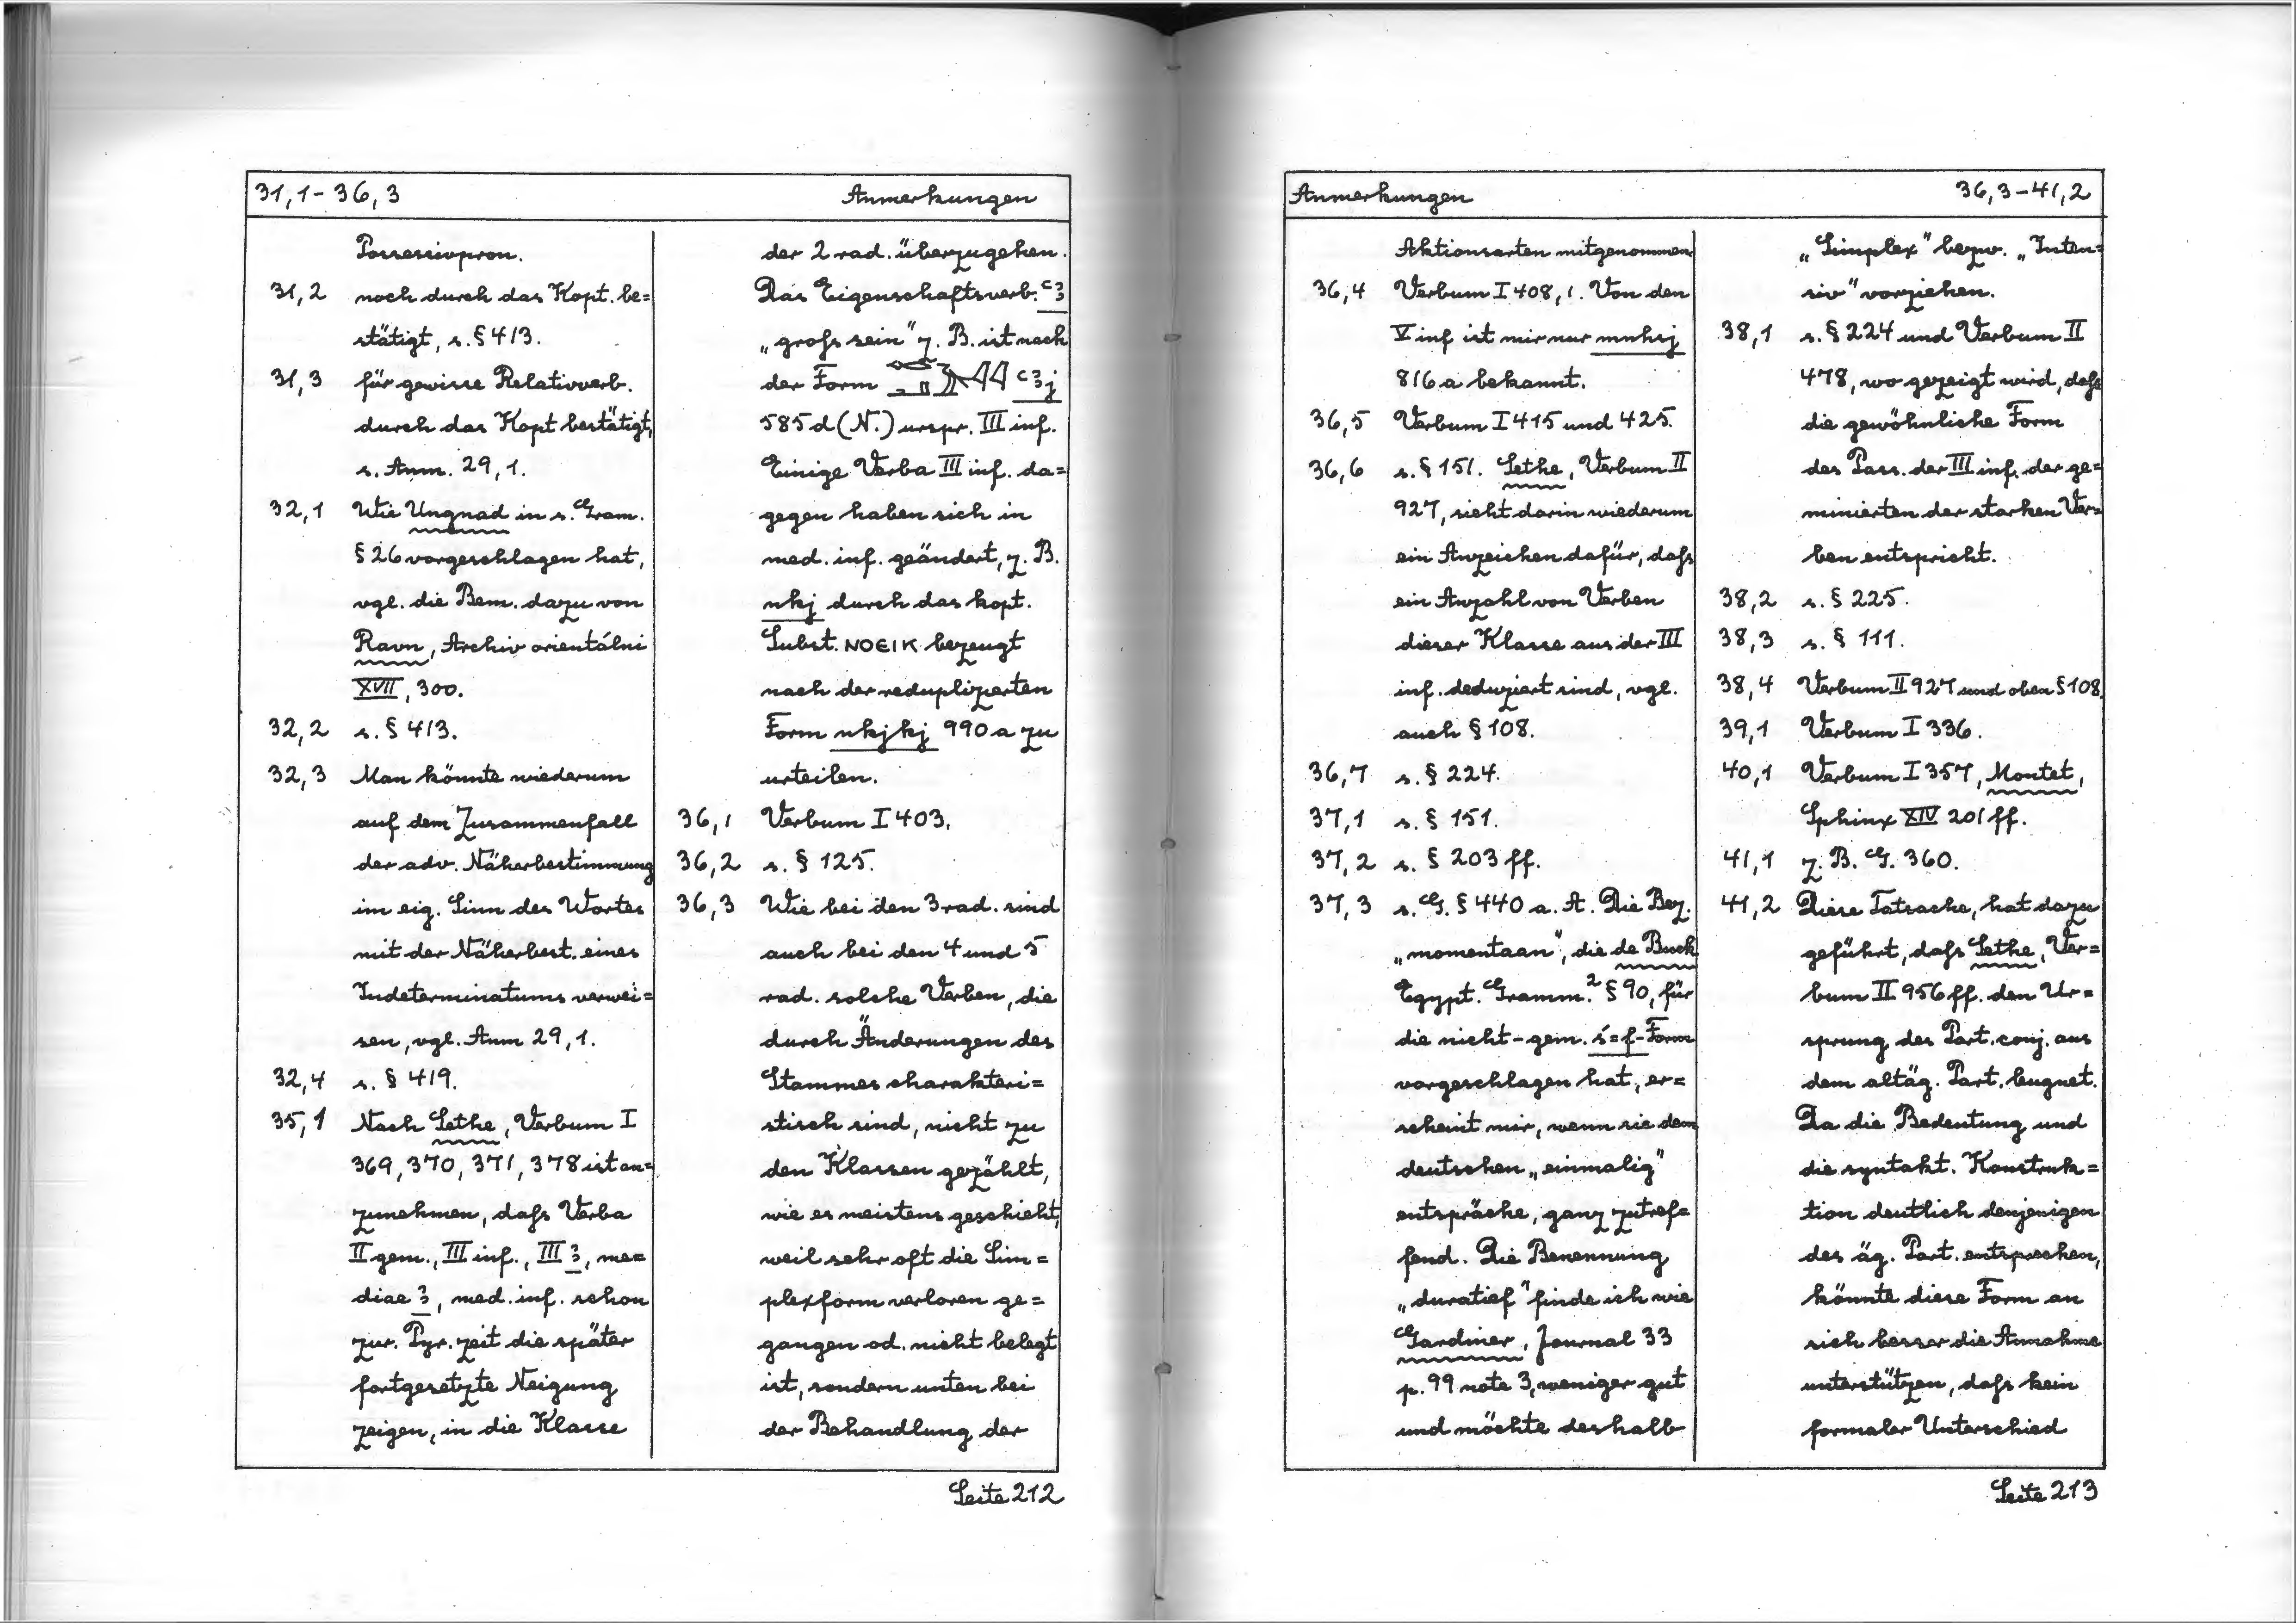 31,1 - 36,3 Anmerkungen
Possessivpron.
31,2 noch durch das Kopt. be=
stätigt, s. § 413.
31,3 für gewisse Relativverb.
durch das Kopt bestätigt,
s. Anm. 29,1.
32,1 Wie Ungnad in s. Gram.
§ 26 vorgeschlagen hat,
vgl. die Bem. dazu von
Ravn, Archiv orientálni
XVII, 300.
32,2 s. § 413.
32,3 Man könnte wiederum
auf dem Zusammenfall
der adv. Näherbestimmung
im eig. Sinn des Wortes
mit der Näherbest. eines
Indeterminatums verwei=
sen, vgl. Anm 29,1.
32,4 s. § 419.
35,1 Nach Sethe, Verbum I
369, 370, 371, 378 ist an=
zunehmen, dafs Verba
II gem., III inf., III ꜣ, me=
diae ꜣ, med. inf. schon
zur. Pyr. zeit die später
fortgesetzte Neigung
zeigen, in die Klasse
der 2 rad. überzugehen.
Das Eigenschaftsverb. ꜥꜣ
„grofs sein" z. B. ist nach
der Form ꜥꜣj
585 d (N.) urspr. III inf.
Einige Verba III inf. da=
gegen haben sich in
med. inf. geändert, z. B.
nkj durch das kopt.
Subst. ⲚⲞⲈⲒⲔ bezeugt
nach der reduplizierten
Form nkjkj 990 a zu
urteilen.
36,1 Verbum I 403.
36,2 s. § 125.
36,3 Wie bei den 3 rad. sind
auch bei den 4 und 5
rad. solche Verben, die
durch Änderungen des
Stammes charakteri=
stisch sind, nicht zu
den Klassen gezählt,
wie es meistens geschieht,
weil sehr oft die Sim=
plexform verloren ge=
gangen od. nicht belegt
ist, sondern unten bei
der Behandlung der
Seite 212
Anmerkungen 36,3 - 41,2
Aktionsarten mitgenommen.
36,4 Verbum I 408, 1. Von den
V inf ist mir nur mnhsj
816 a bekannt.
36,5 Verbum I 415 und 425.
36,6 s. § 151. Sethe, Verbum II
927, sieht darin wiederum
ein Anzeichen dafür, dafs
ein Anzahl von Verben
dieser Klasse aus der III
inf. deduziert sind, vgl.
auch § 108.
36,7 s. § 224.
37,1 s. § 151.
37,2 s. § 203 ff.
37,3 s. G. § 440 a. A. Die Bez.
„momentaan", die de Buck
Egypt. Gramm.² § 90, für
die nicht-gem. ś=f-Form
vorgeschlagen hat, er=
scheint mir, wenn sie dem
deutschen „einmalig"
entspräche, ganz zutref=
fend. Die Benennung
„duratief" finde ich wie
Gardiner, Journal 33
p. 99 note 3, weniger gut
und möchte deshalb
„Simplex" bezw. „Inten=
siv" vorziehen.
38,1 s. § 224 und Verbum II
478, wo gezeigt wird, dafs
die gewöhnliche Form
des Pass. der III inf. der ge=
minierten der starken Ver=
ben entspricht.
38,2 s. § 225.
38,3 s. § 111.
38,4 Verbum II 927 und oben § 108.
39,1 Verbum I 336.
40,1 Verbum I 357, Montet,
Sphinx XIV 201 ff.
41,1 z. B. G. 360.
41,2 Diese Tatsache, hat dazu
geführt, dafs Sethe, Ver=
bum II 956 ff. den Ur=
sprung des Part. conj. aus
dem altäg. Part. leugnet.
Da die Bedeutung und
die syntakt. Konstruk=
tion deutlich denjenigen
des äg. Part. entsprechen,
könnte diese Form an
sich besser die Annahme
unterstützen, dafs kein
formaler Unterschied
Seite 213